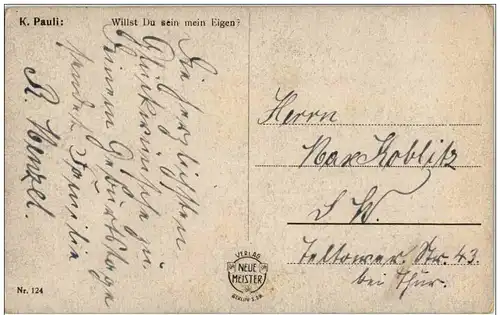 K. Pauli: Willst Du sein mein Eigen?
Die herzlichsten
Glückwünsche zu
Deinem Geburtstage
sendet Familie
R. Menzel.
Herrn
Max Koblitz
S W.
Teltower. Str. 43.
bei Thur.
VERLAG
NEUE
MEISTER
BERLIN
Nr. 124